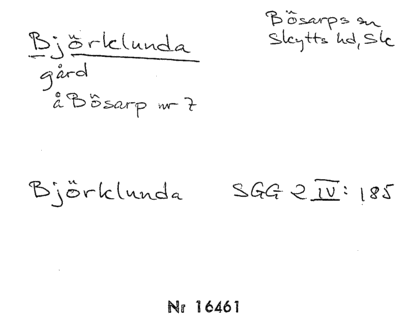 Björklunda
Bösarps sn
Skytts hd, Sk
gård
å Bösarp nr 7
Björklunda SGG 2 IV: 185
Nr 16461